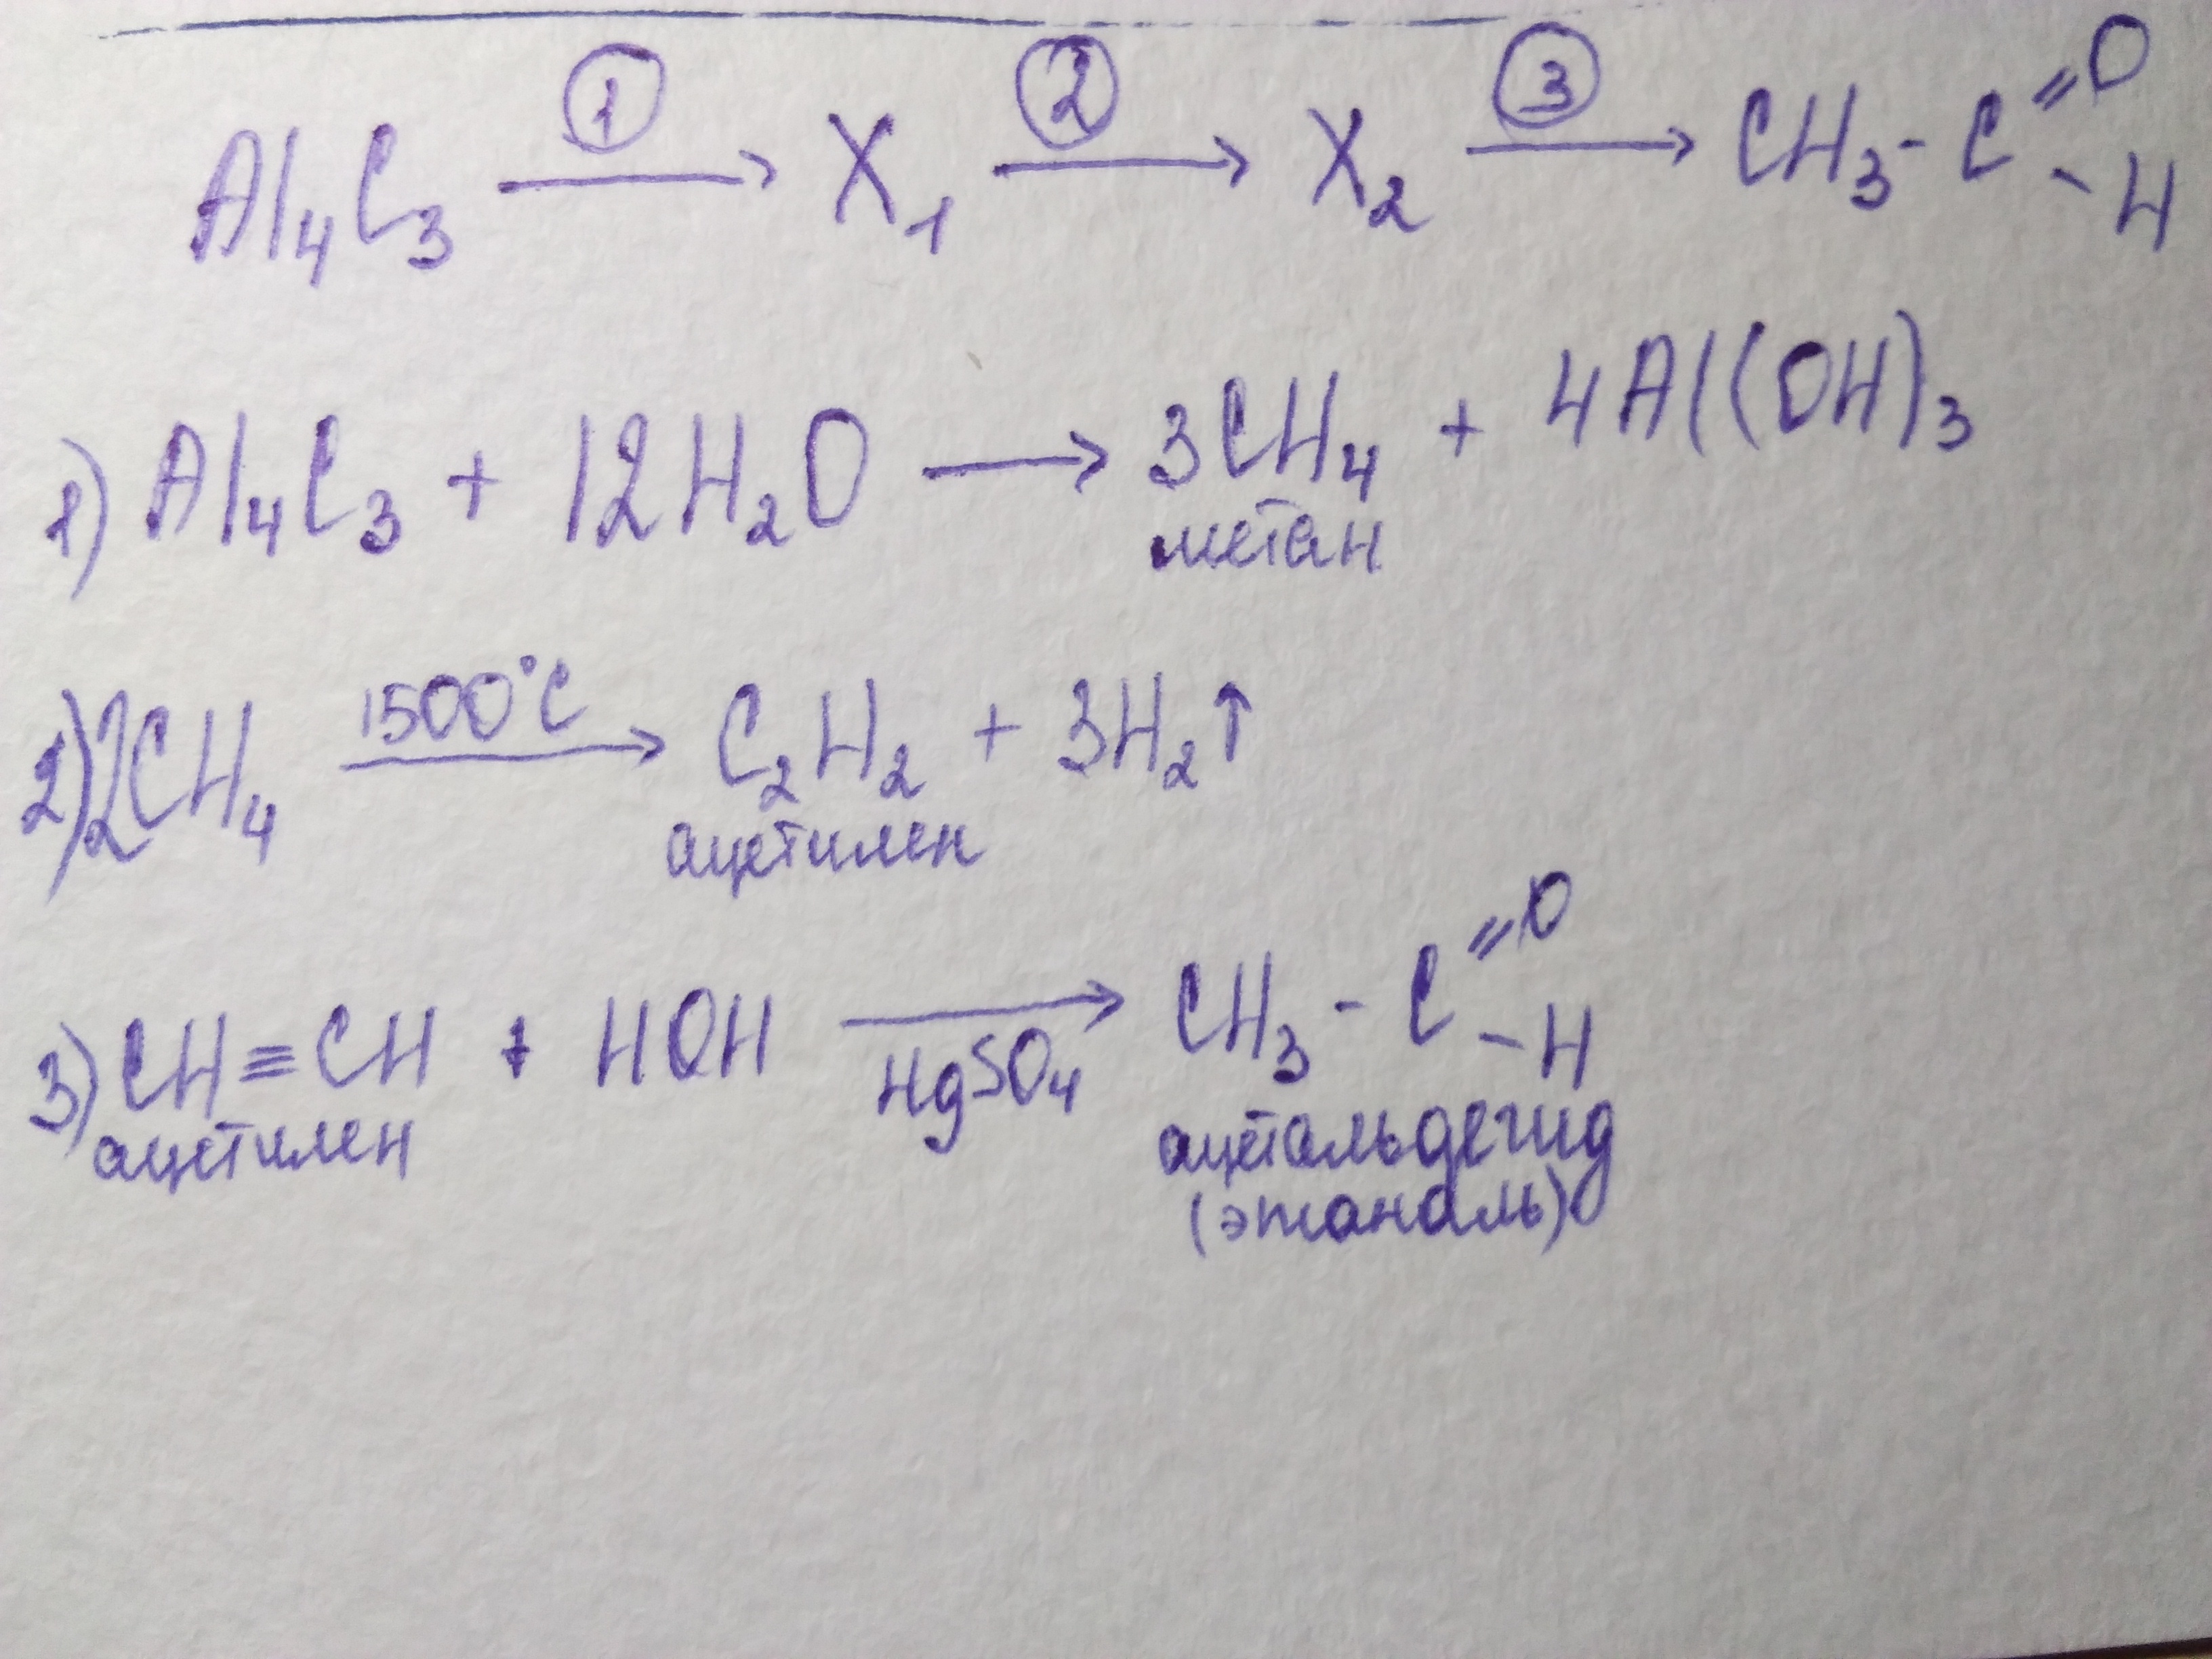 Al₄C₃ —①→ X₁ —②→ X₂ —③→ CH₃-C=O-H
1) Al₄C₃ + 12H₂O → 3CH₄ + 4Al(OH)₃
метан
2) 2CH₄ —1500°C→ C₂H₂ + 3H₂↑
ацетилен
3) CH≡CH + HOH —HgSO₄→ CH₃-C=O-H
ацетилен ацетальдегид
(этаналь)